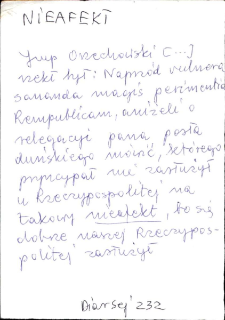 NIEAFEKT
Jmp Orzechowski [...]
rzekł był: Naprzód vulnera
sananda magis perimentia
Rempublicam, aniżeli o
relegacyi pana posła
duńskiego mówić, którego
pryncypał nie zasłużył
u Rzeczypospolitej na
takowy nieafekt, bo się
dobrze naszej Rzeczypos-
politej zasłużył
DiarSej 232